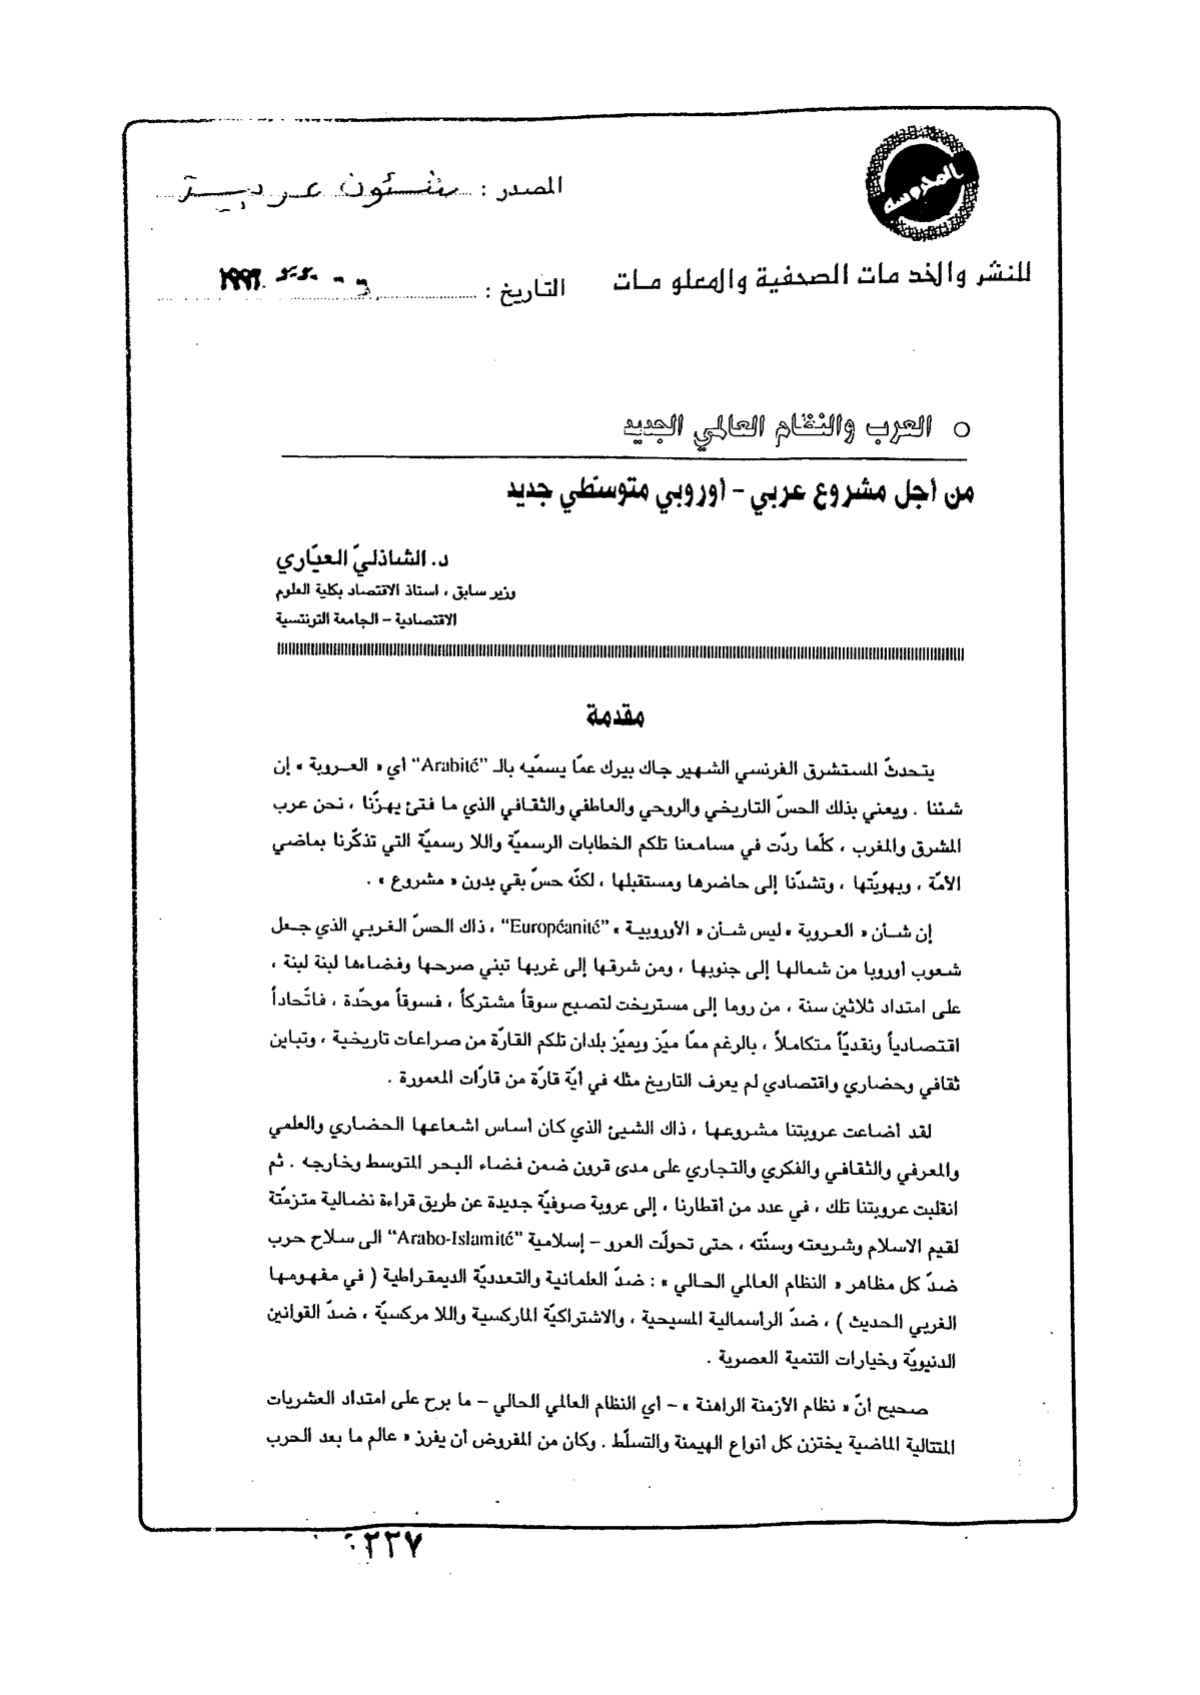 المحروسة
المصدر : شئون عربية
للنشر والخدمات الصحفية والمعلومات
التاريخ :
○ العرب والنظام العالمي الجديد
من أجل مشروع عربي – أوروبي متوسّطي جديد
د. الشاذليّ العيّاري
وزير سابق ، استاذ الاقتصاد بكلية العلوم
الاقتصادية – الجامعة التونسية
مقدمة
يتحدثّ المستشرق الفرنسي الشهير جاك بيرك عمّا يسمّيه بالـ "Arabité" أي « العروبة » إن
شئنا . ويعني بذلك الحسّ التاريخي والروحي والعاطفي والثقافي الذي ما فتئ يهزّنا ، نحن عرب
المشرق والمغرب ، كلّما ردّت في مسامعنا تلكم الخطابات الرسميّة واللا رسميّة التي تذكّرنا بماضي
الأمّة ، وبهويّتها ، وتشدّنا إلى حاضرها ومستقبلها ، لكنّه حسّ بقي بدون « مشروع » .
إن شأن « العروبة » ليس شأن « الأوروبية » "Européanité" ، ذاك الحسّ الغربي الذي جعل
شعوب أوروبا من شمالها إلى جنوبها ، ومن شرقها إلى غربها تبني صرحها وفضاءها لبنة لبنة ،
على امتداد ثلاثين سنة ، من روما إلى مستريخت لتصبح سوقاً مشتركاً ، فسوقاً موحّدة ، فاتّحاداً
اقتصادياً ونقديّاً متكاملاً ، بالرغم ممّا ميّز ويميّز بلدان تلكم القارّة من صراعات تاريخية ، وتباين
ثقافي وحضاري واقتصادي لم يعرف التاريخ مثله في أيّة قارّة من قارّات المعمورة .
لقد أضاعت عروبتنا مشروعها ، ذاك الشيئ الذي كان أساس اشعاعها الحضاري والعلمي
والمعرفي والثقافي والفكري والتجاري على مدى قرون ضمن فضاء البحر المتوسط وخارجه . ثم
انقلبت عروبتنا تلك ، في عدد من أقطارنا ، إلى عروبة صوفيّة جديدة عن طريق قراءة نضالية متزمّتة
لقيم الاسلام وشريعته وسنّته ، حتى تحولّت العرو – إسلامية "Arabo-Islamité" الى سلاح حرب
ضدّ كل مظاهر « النظام العالمي الحالي » : ضدّ العلمانية والتعدديّة الديمقراطية ( في مفهومها
الغربي الحديث ) ، ضدّ الرأسمالية المسيحية ، والاشتراكيّة الماركسية واللا مركسيّة ، ضدّ القوانين
الدنيويّة وخيارات التنمية العصرية .
صحيح أنّ « نظام الأزمنة الراهنة » – أي النظام العالمي الحالي – ما برح على امتداد العشريات
المتتالية الماضية يختزن كل أنواع الهيمنة والتسلّط . وكان من المفروض أن يفرز « عالم ما بعد الحرب
٠٢٢٧